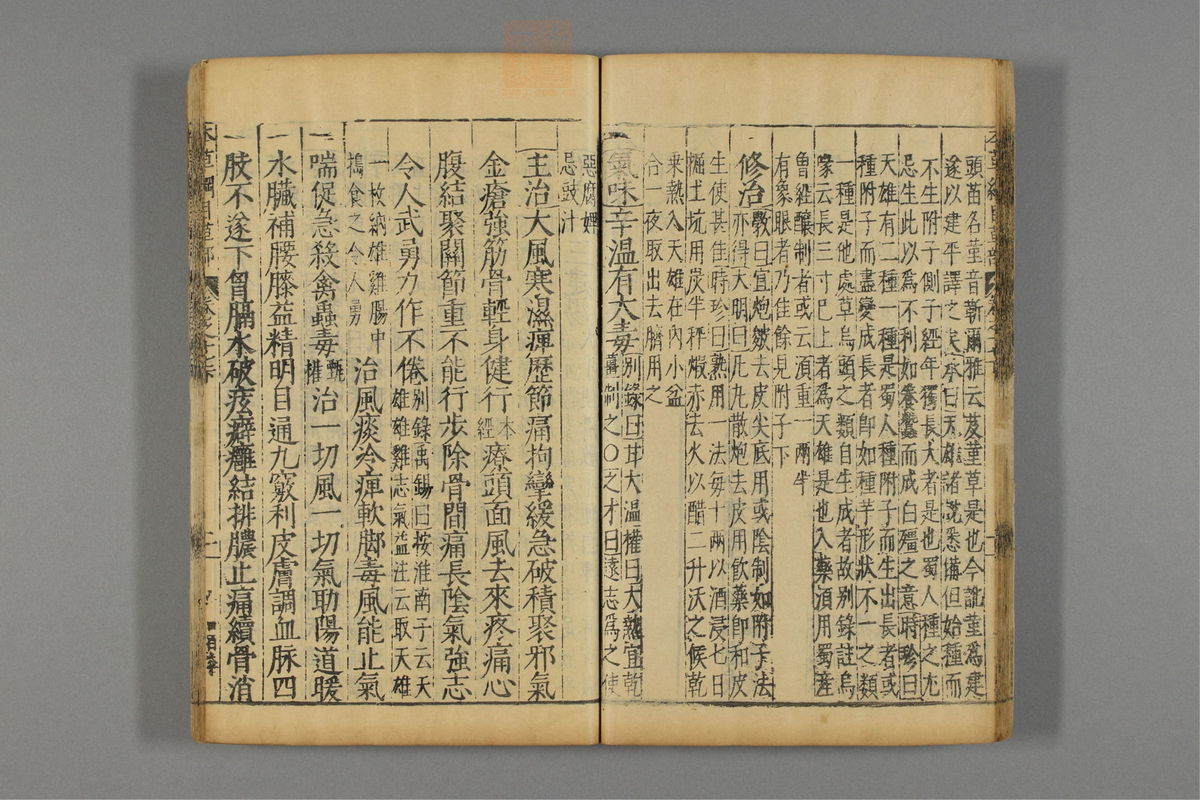 頭苗名堇音靳爾雅云芨堇草是也今訛堇爲建
遂以建平譯之矣承曰天雄諸説悉備但始種而
不生附子側子經年獨長大者是也蜀人種之尤
忌生此以爲不利如養蠶而成白殭之意時珍曰
天雄有二種一種是蜀人種附子而生出長者或
種附子而盡變成長者即如種芋形狀不一之類
一種是他處草烏頭之類自生成者故别錄註烏
喙云長三寸已上者爲天雄是也入藥須用蜀産
曾經釀制者或云須重一兩半
有象眼者乃佳餘見附子下
修治斆曰宜炮皴去皮尖底用或陰制如附子法
亦得大明曰凡丸散炮去皮用飲藥即和皮
生使甚佳時珍曰熟用一法每十兩以酒浸七日
掘土坑用炭半秤煅赤去火以醋二升沃之候乾
乘熱入天雄在内小盆
合一夜取出去臍用之
氣味辛温有大毒别錄曰甘大温權曰大熱宜乾
薑制之〇之才曰遠志爲之使
惡腐婢
忌豉汁
主治大風寒濕痺歴節痛拘攣緩急破積聚邪氣
金瘡強筋骨輕身健行本經療頭面風去來疼痛心
腹結聚關節重不能行步除骨間痛長陰氣強志
令人武勇力作不倦别錄禹錫曰按淮南子云天
雄雄雞志氣益注云取天雄
一枚納雄雞腸中
搗食之令人勇治風痰冷痺軟脚毒風能止氣
喘促急殺禽蟲毒甄權治一切風一切氣助陽道暖
水臟補腰膝益精明目通九竅利皮膚調血脉四
肢不遂下胷膈水破痃癖癰結排膿止痛續骨消